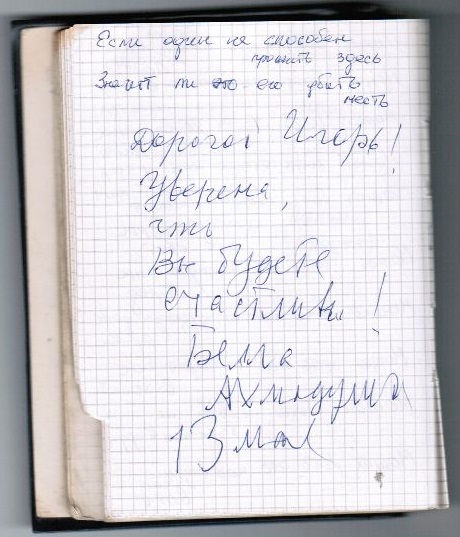 Если один не способен
прожить здесь
Значит ли это его убить
месть
Дорогой Игорь!
Уверена,
что
Вы будете
счастливы!
Белла
Ахмадулина
13 мая